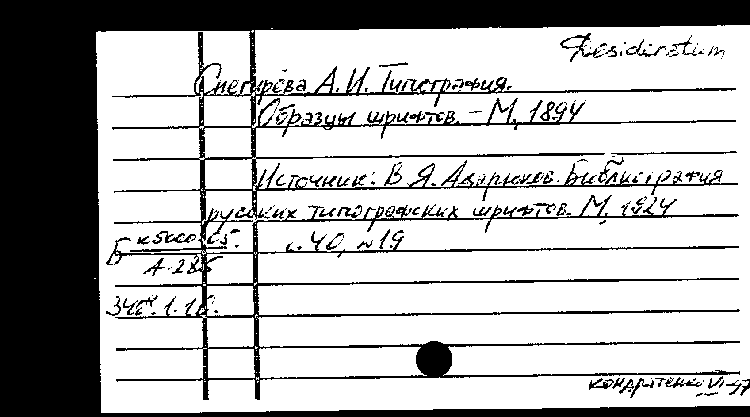 Desideratum
Снегирёва А. И. Типография.
Образцы шрифтов. – М., 1894
Источник: В. Я. Адарюков. Библиография
русских типографских шрифтов. М., 1924
с. 40, №19
Б
А-285
Кондратенко VI-47